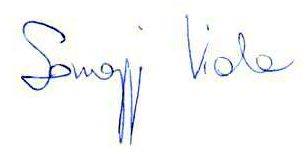 Somogyi Viola